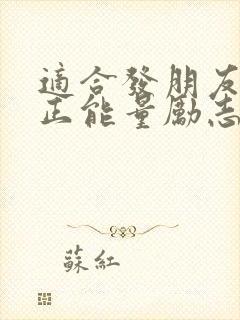 適合發朋友
正能量勵志
蘇紅